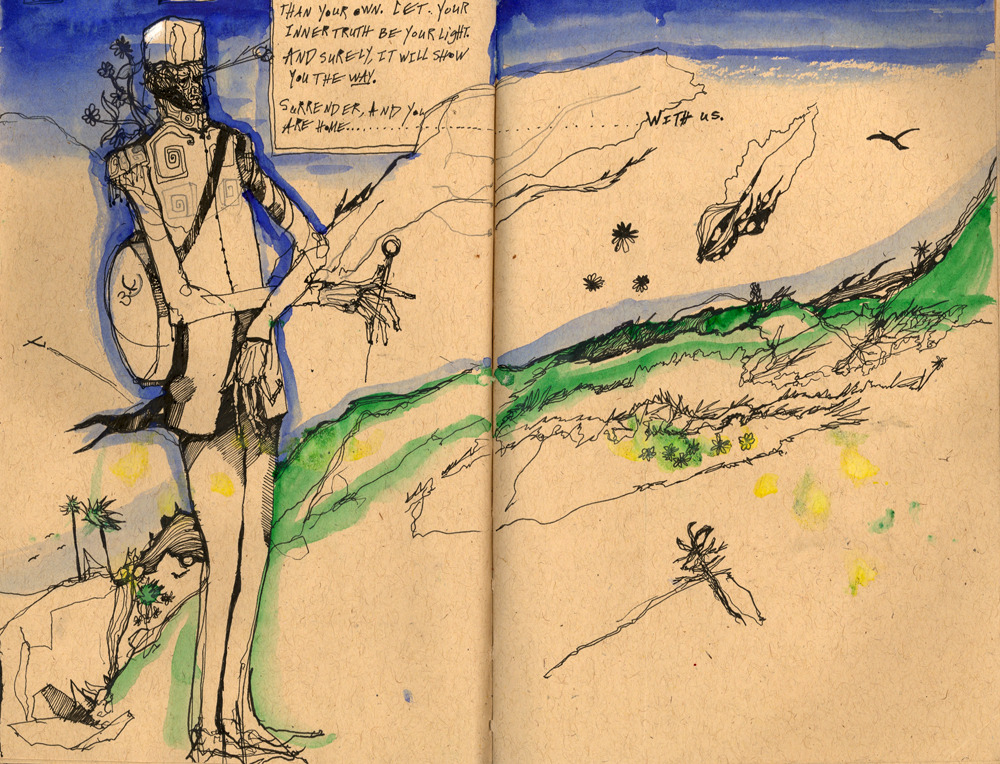 THAN YOUR OWN. LET YOUR
INNER TRUTH BE YOUR LIGHT.
AND SURELY, IT WILL SHOW
YOU THE WAY.
SURRENDER, AND YOU
ARE HOME............................ WITH US.